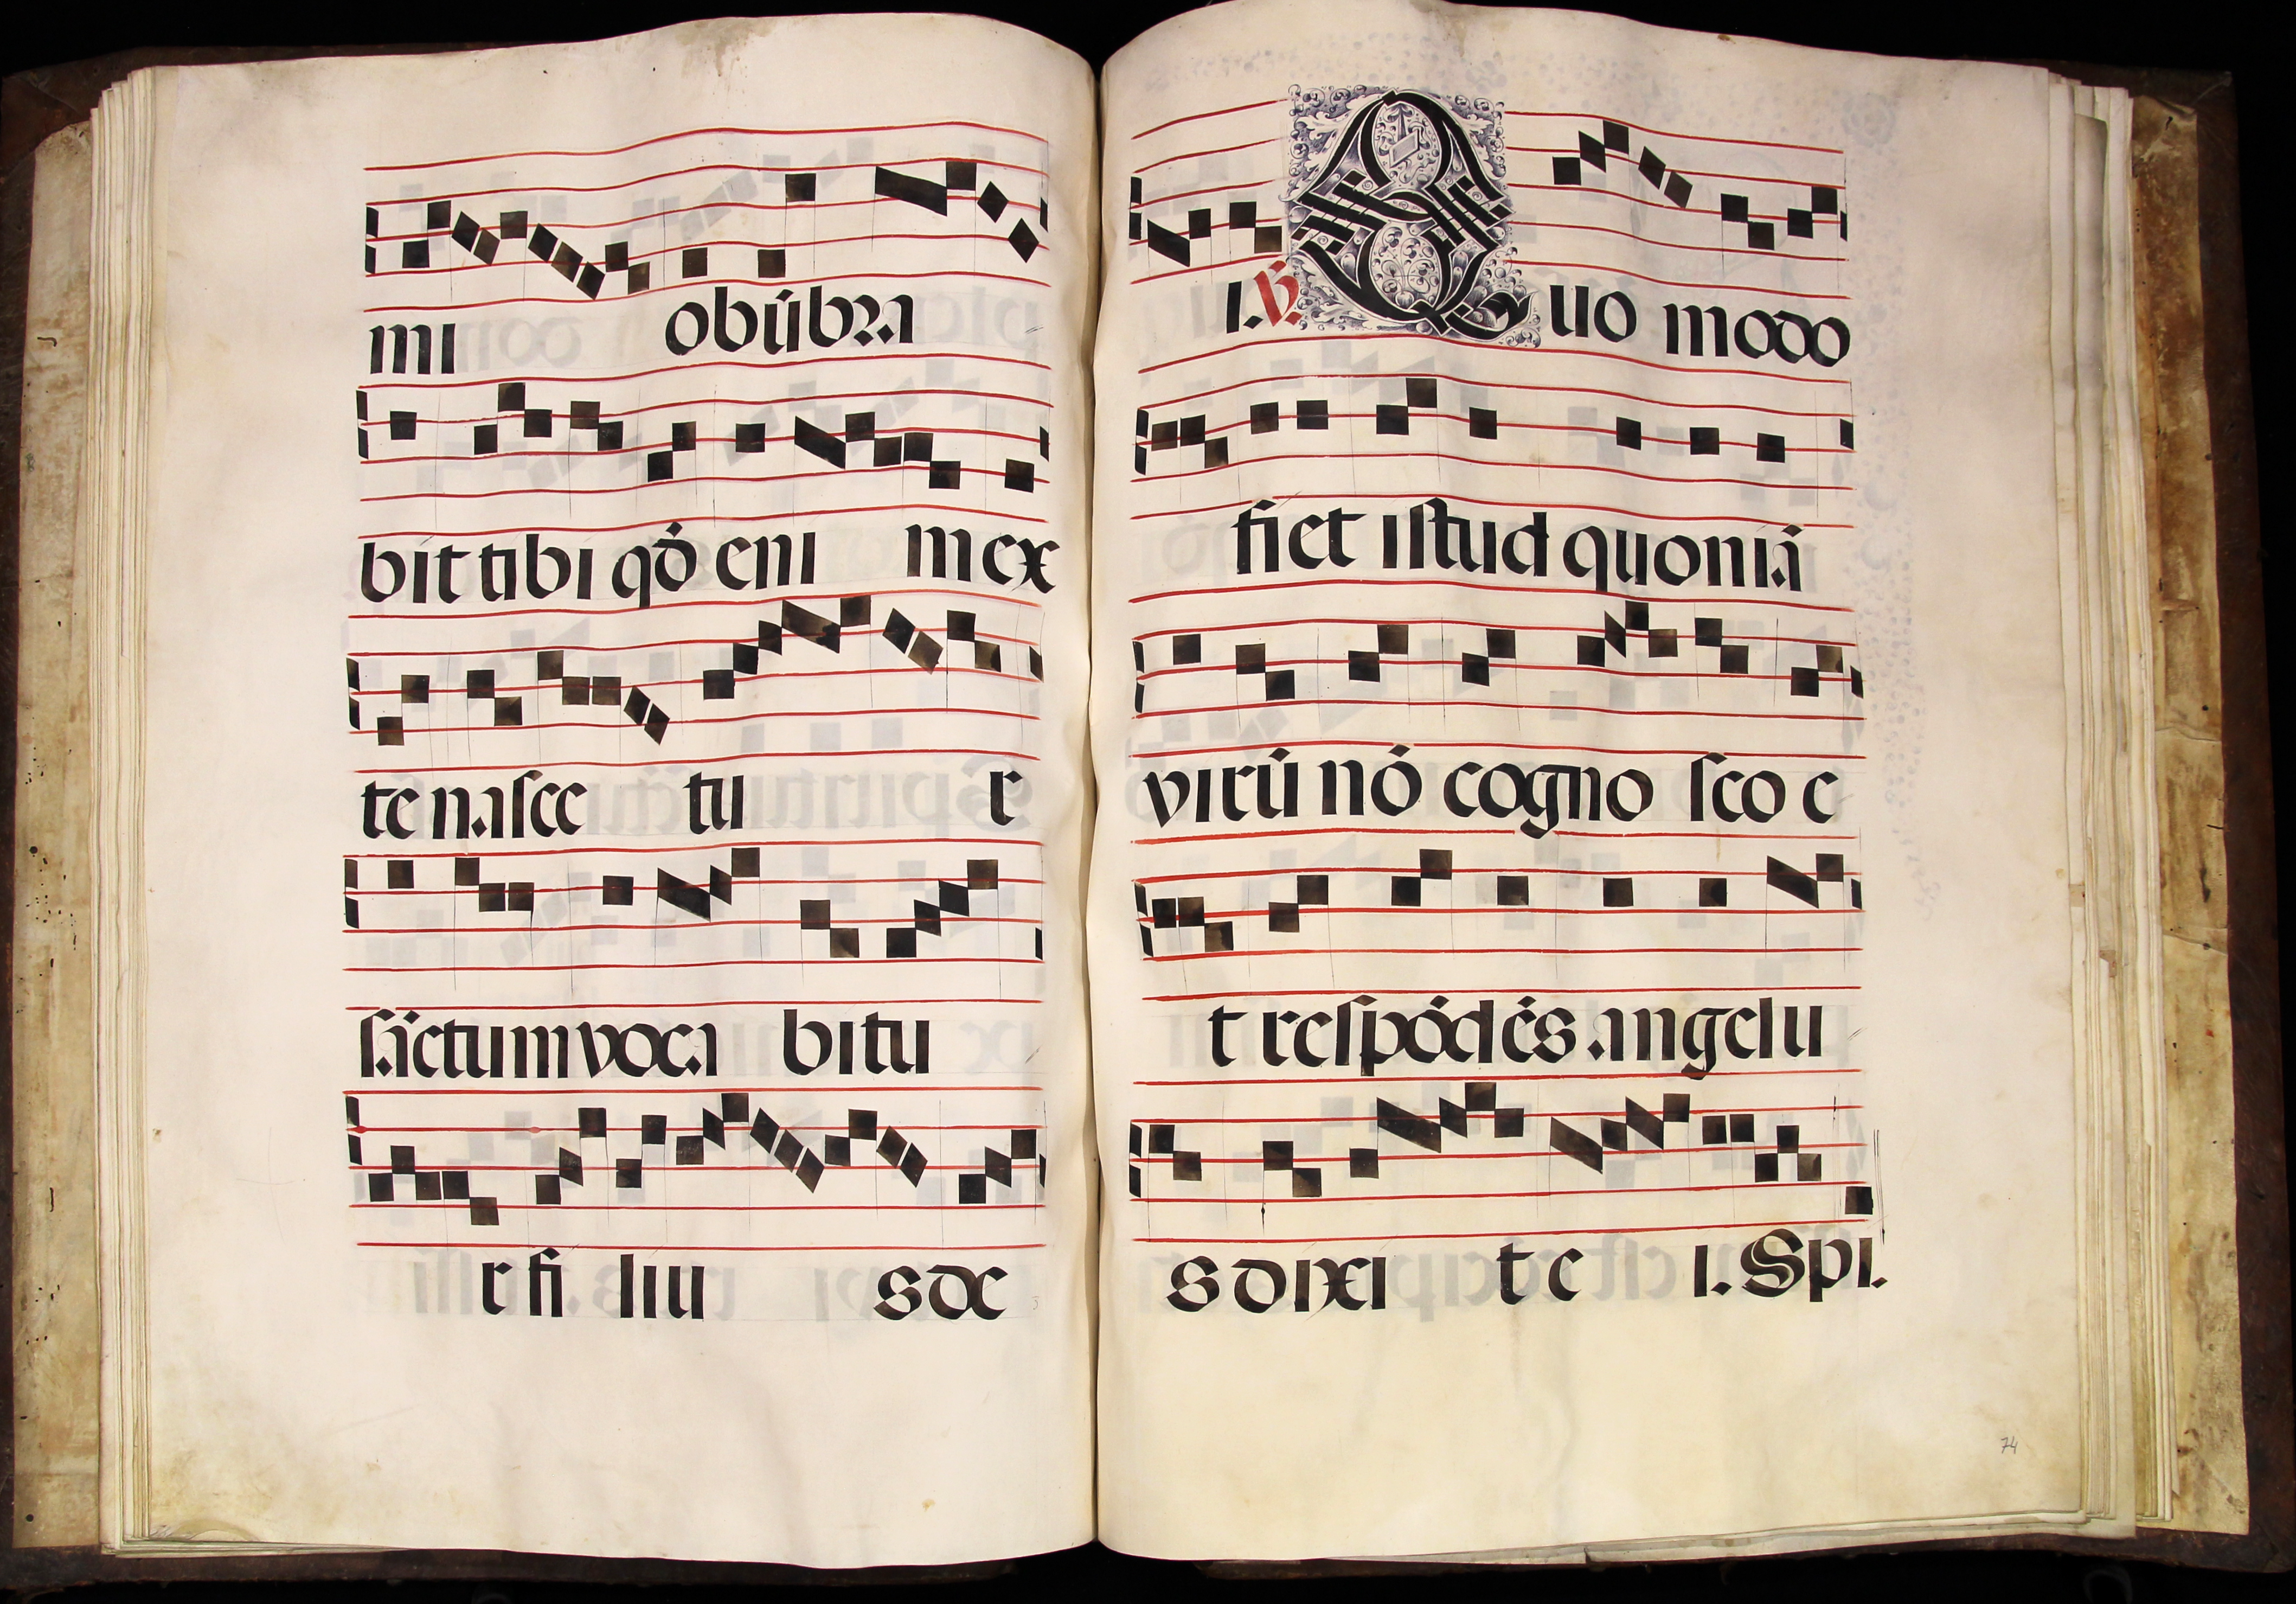 mi obúbra
bit tibi qđ eni m ex
te nasce tu r
sāctum voca bitu
r fi liu s de
I. ℣. Quo modo
fiet istud quoniā
virū nō cogno sco e
t respōdēs angelu
s dixi t e I. Spi.
74